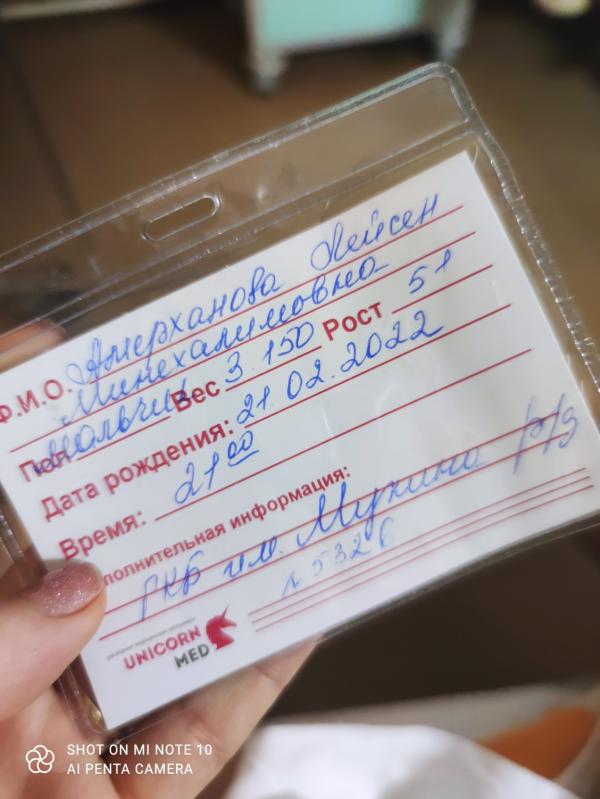 Ф.И.О. Амерханова Лейсен
Минехалимовна
Пол мальчик Вес 3.150 Рост 51
Дата рождения: 21.02.2022
Время: 21 00
полнительная информация:
ГКБ им. Мухина р/з
№ 5326
UNICORN
MED
SHOT ON MI NOTE 10
AI PENTA CAMERA